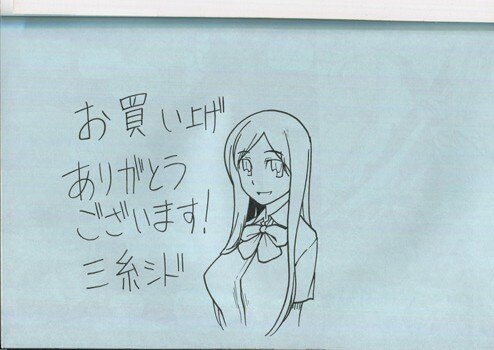 お買い上げ
ありがとう
ございます!
三糸シド